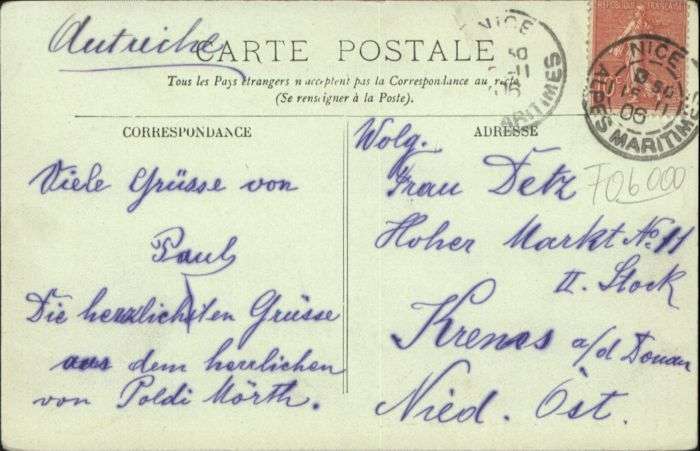 Autriche
CARTE POSTALE
Tous les Pays étrangers n'acceptent pas la Correspondance au recto
(Se renseigner à la Poste).
CORRESPONDANCE
Viele Grüsse von
Paul
Die herzlichsten Grüsse
aus dem herrlichen
von Poldi Mörth.
ADRESSE
Wolg.
Frau Detz
Hoher Markt No. 11
II. Stock
Krems a/d Donau
Nied. Öst.
F06000
REPUBLIQUE FRANÇAISE
NICE
ALPES MARITIMES
NICE
MARITIMES